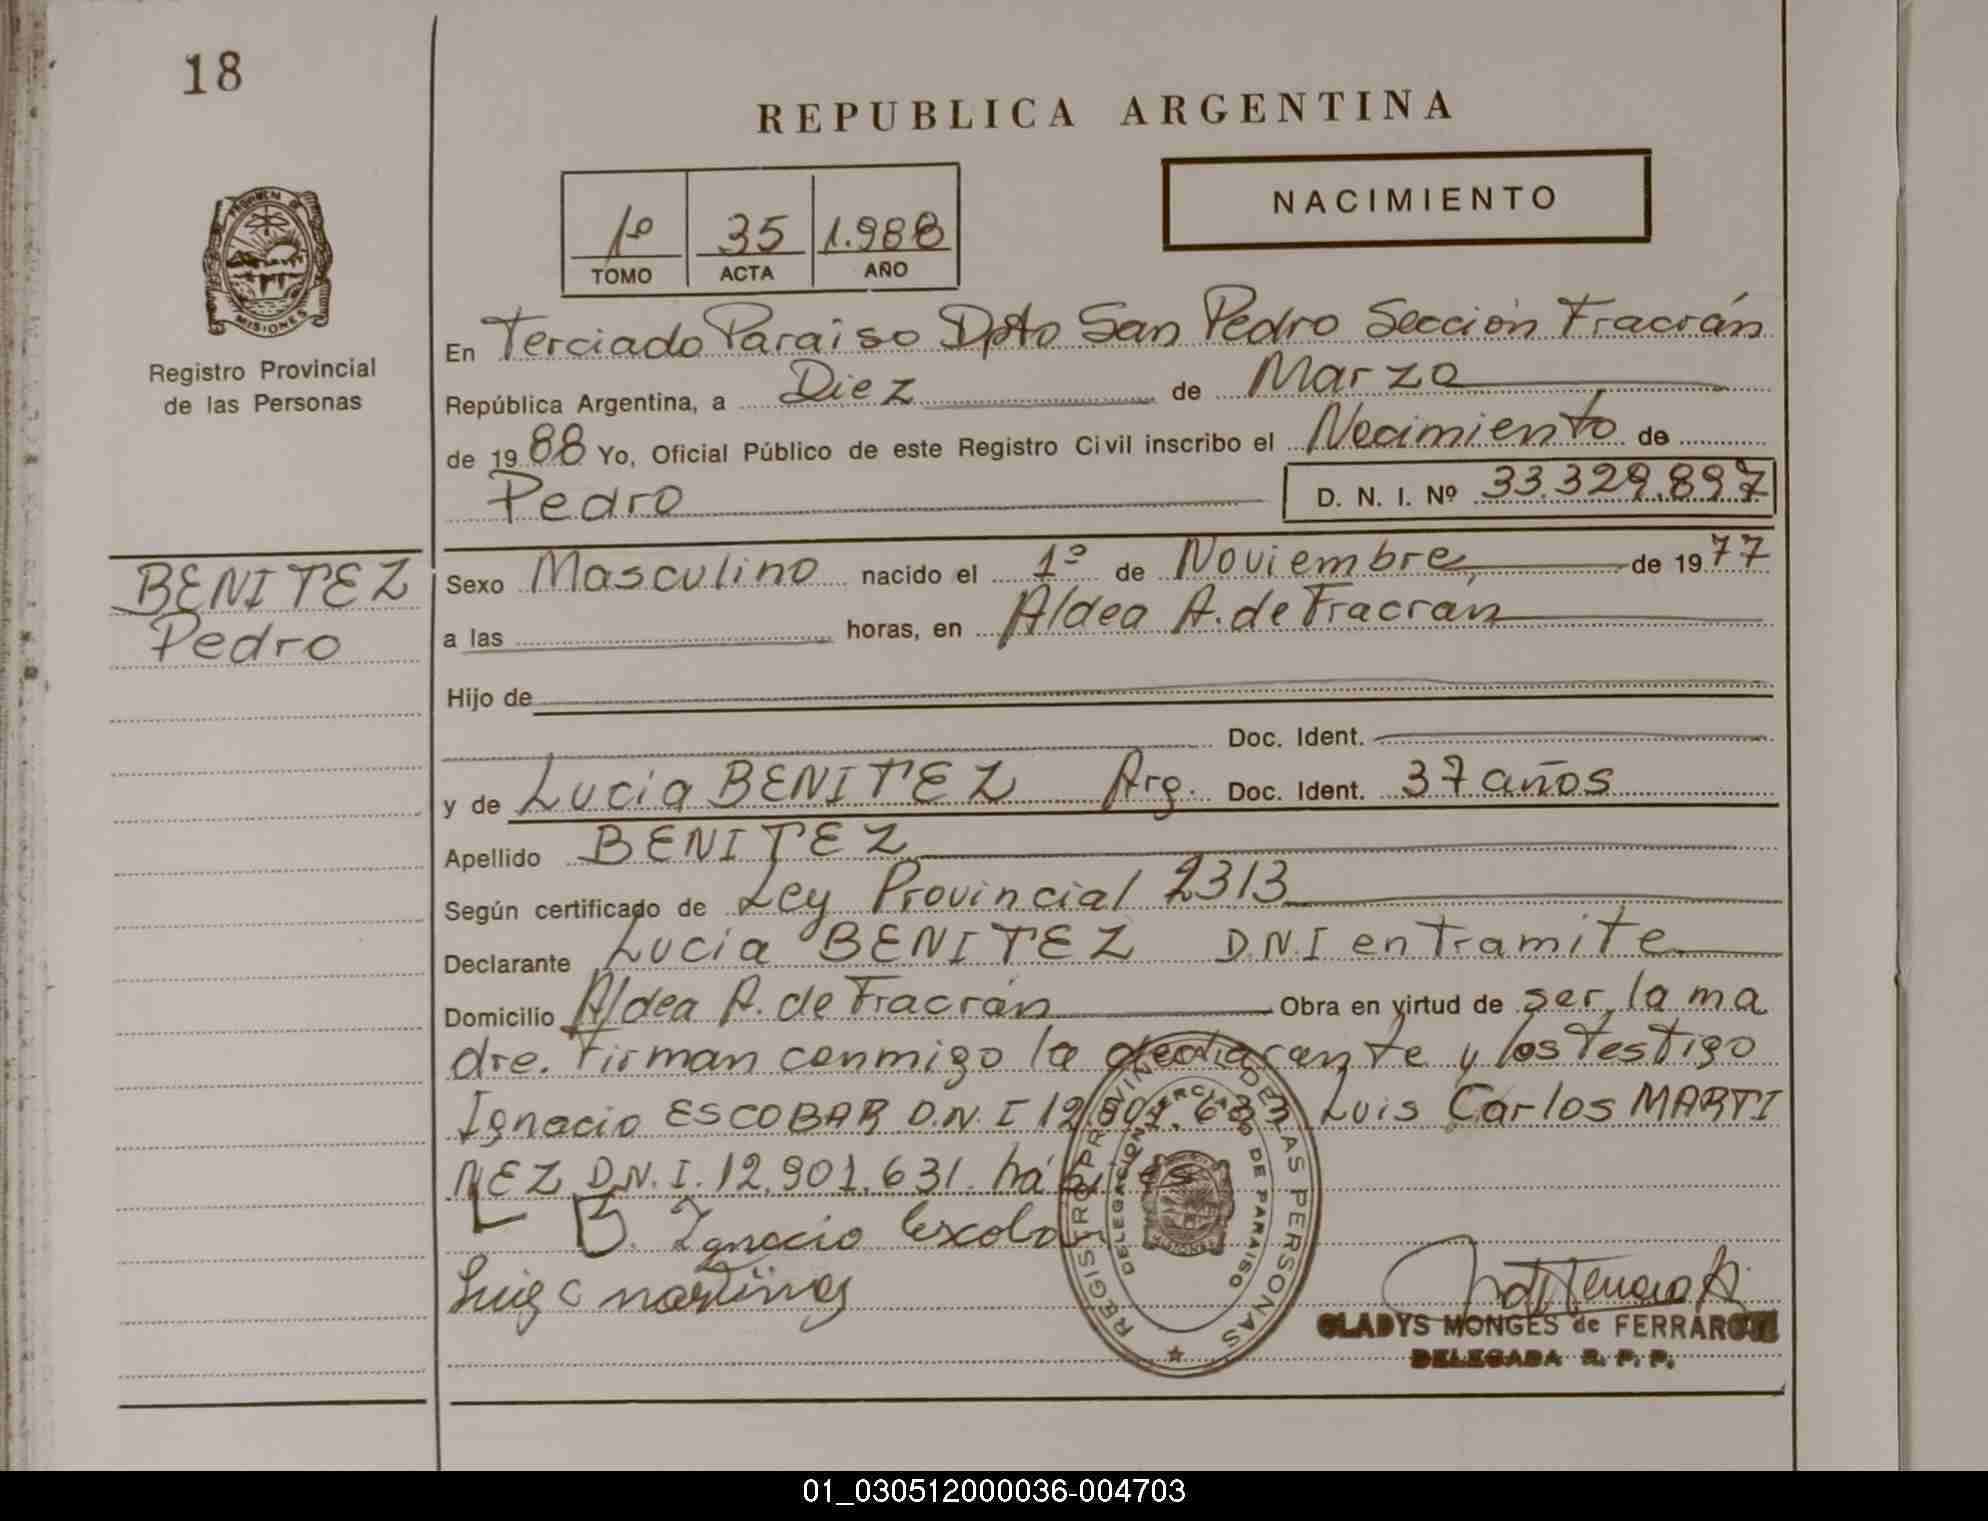 18
REPUBLICA ARGENTINA
NACIMIENTO
1º 35 1.988
TOMO ACTA AÑO
MISIONES
Registro Provincial
de las Personas
En Terciado Paraiso Dpto San Pedro Sección Fracrán
República Argentina, a Diez de Marzo
de 1988 Yo, Oficial Público de este Registro Civil inscribo el Nacimiento de
Pedro D. N. I. Nº 33.329.897
BENITEZ
Pedro
Sexo Masculino nacido el 1º de Noviembre, de 1977
a las horas, en Aldea A. de Fracrán
Hijo de
Doc. Ident.
y de Lucia BENITEZ Arg. Doc. Ident. 37 años
Apellido BENITEZ
Según certificado de Ley Provincial 2313
Declarante Lucia BENITEZ D.N.I en Tramite
Domicilio Aldea A. de Fracrán Obra en virtud de ser la ma
dre. Firman conmigo la declarante y los Testigo
Ignacio ESCOBAR D.N.I Luis Carlos MARTI
NEZ D.N.I. 12.901.631. hábiles
L B. Ignacio Escobar
Luis C Martinez
REGISTRO PROVINCIAL DE LAS PERSONAS
DELEGACION TERCIADO DE PARAISO
MISIONES
GLADYS MONGES de FERRARO
DELEGADA R. P. P.
01_030512000036-004703